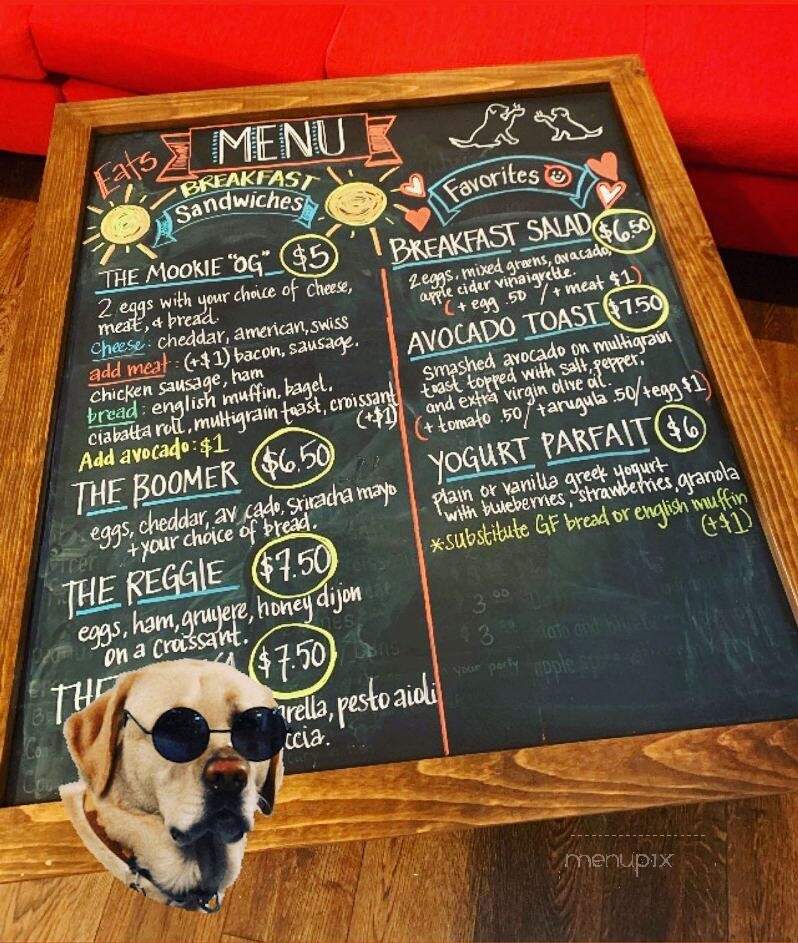 Eats
MENU
BREAKFAST
Sandwiches
THE MOOKIE "OG" $5
2 eggs with your choice of cheese,
meat, & bread.
cheese: cheddar, american, swiss
add meat: (+$1) bacon, sausage,
chicken sausage, ham
bread: english muffin, bagel,
ciabatta roll, multigrain toast, croissant
(+$1)
Add avocado: $1
THE BOOMER $6.50
eggs, cheddar, av cado, sriracha mayo
+ your choice of bread.
THE REGGIE $7.50
eggs, ham, gruyere, honey dijon
on a croissant.
$7.50
pesto aioli
Favorites
BREAKFAST SALAD $6.50
2 eggs, mixed greens, avacado,
apple cider vinaigrette.
(+ egg .50 / + meat $1)
AVOCADO TOAST $7.50
smashed avocado on multigrain
toast topped with salt, pepper,
and extra virgin olive oil.
(+ tomato .50/+arugula .50/+egg $1)
YOGURT PARFAIT $6
Plain or vanilla greek yogurt
with blueberries, strawberries, granola
*substitute GF bread or english muffin
(+$1)
menupix